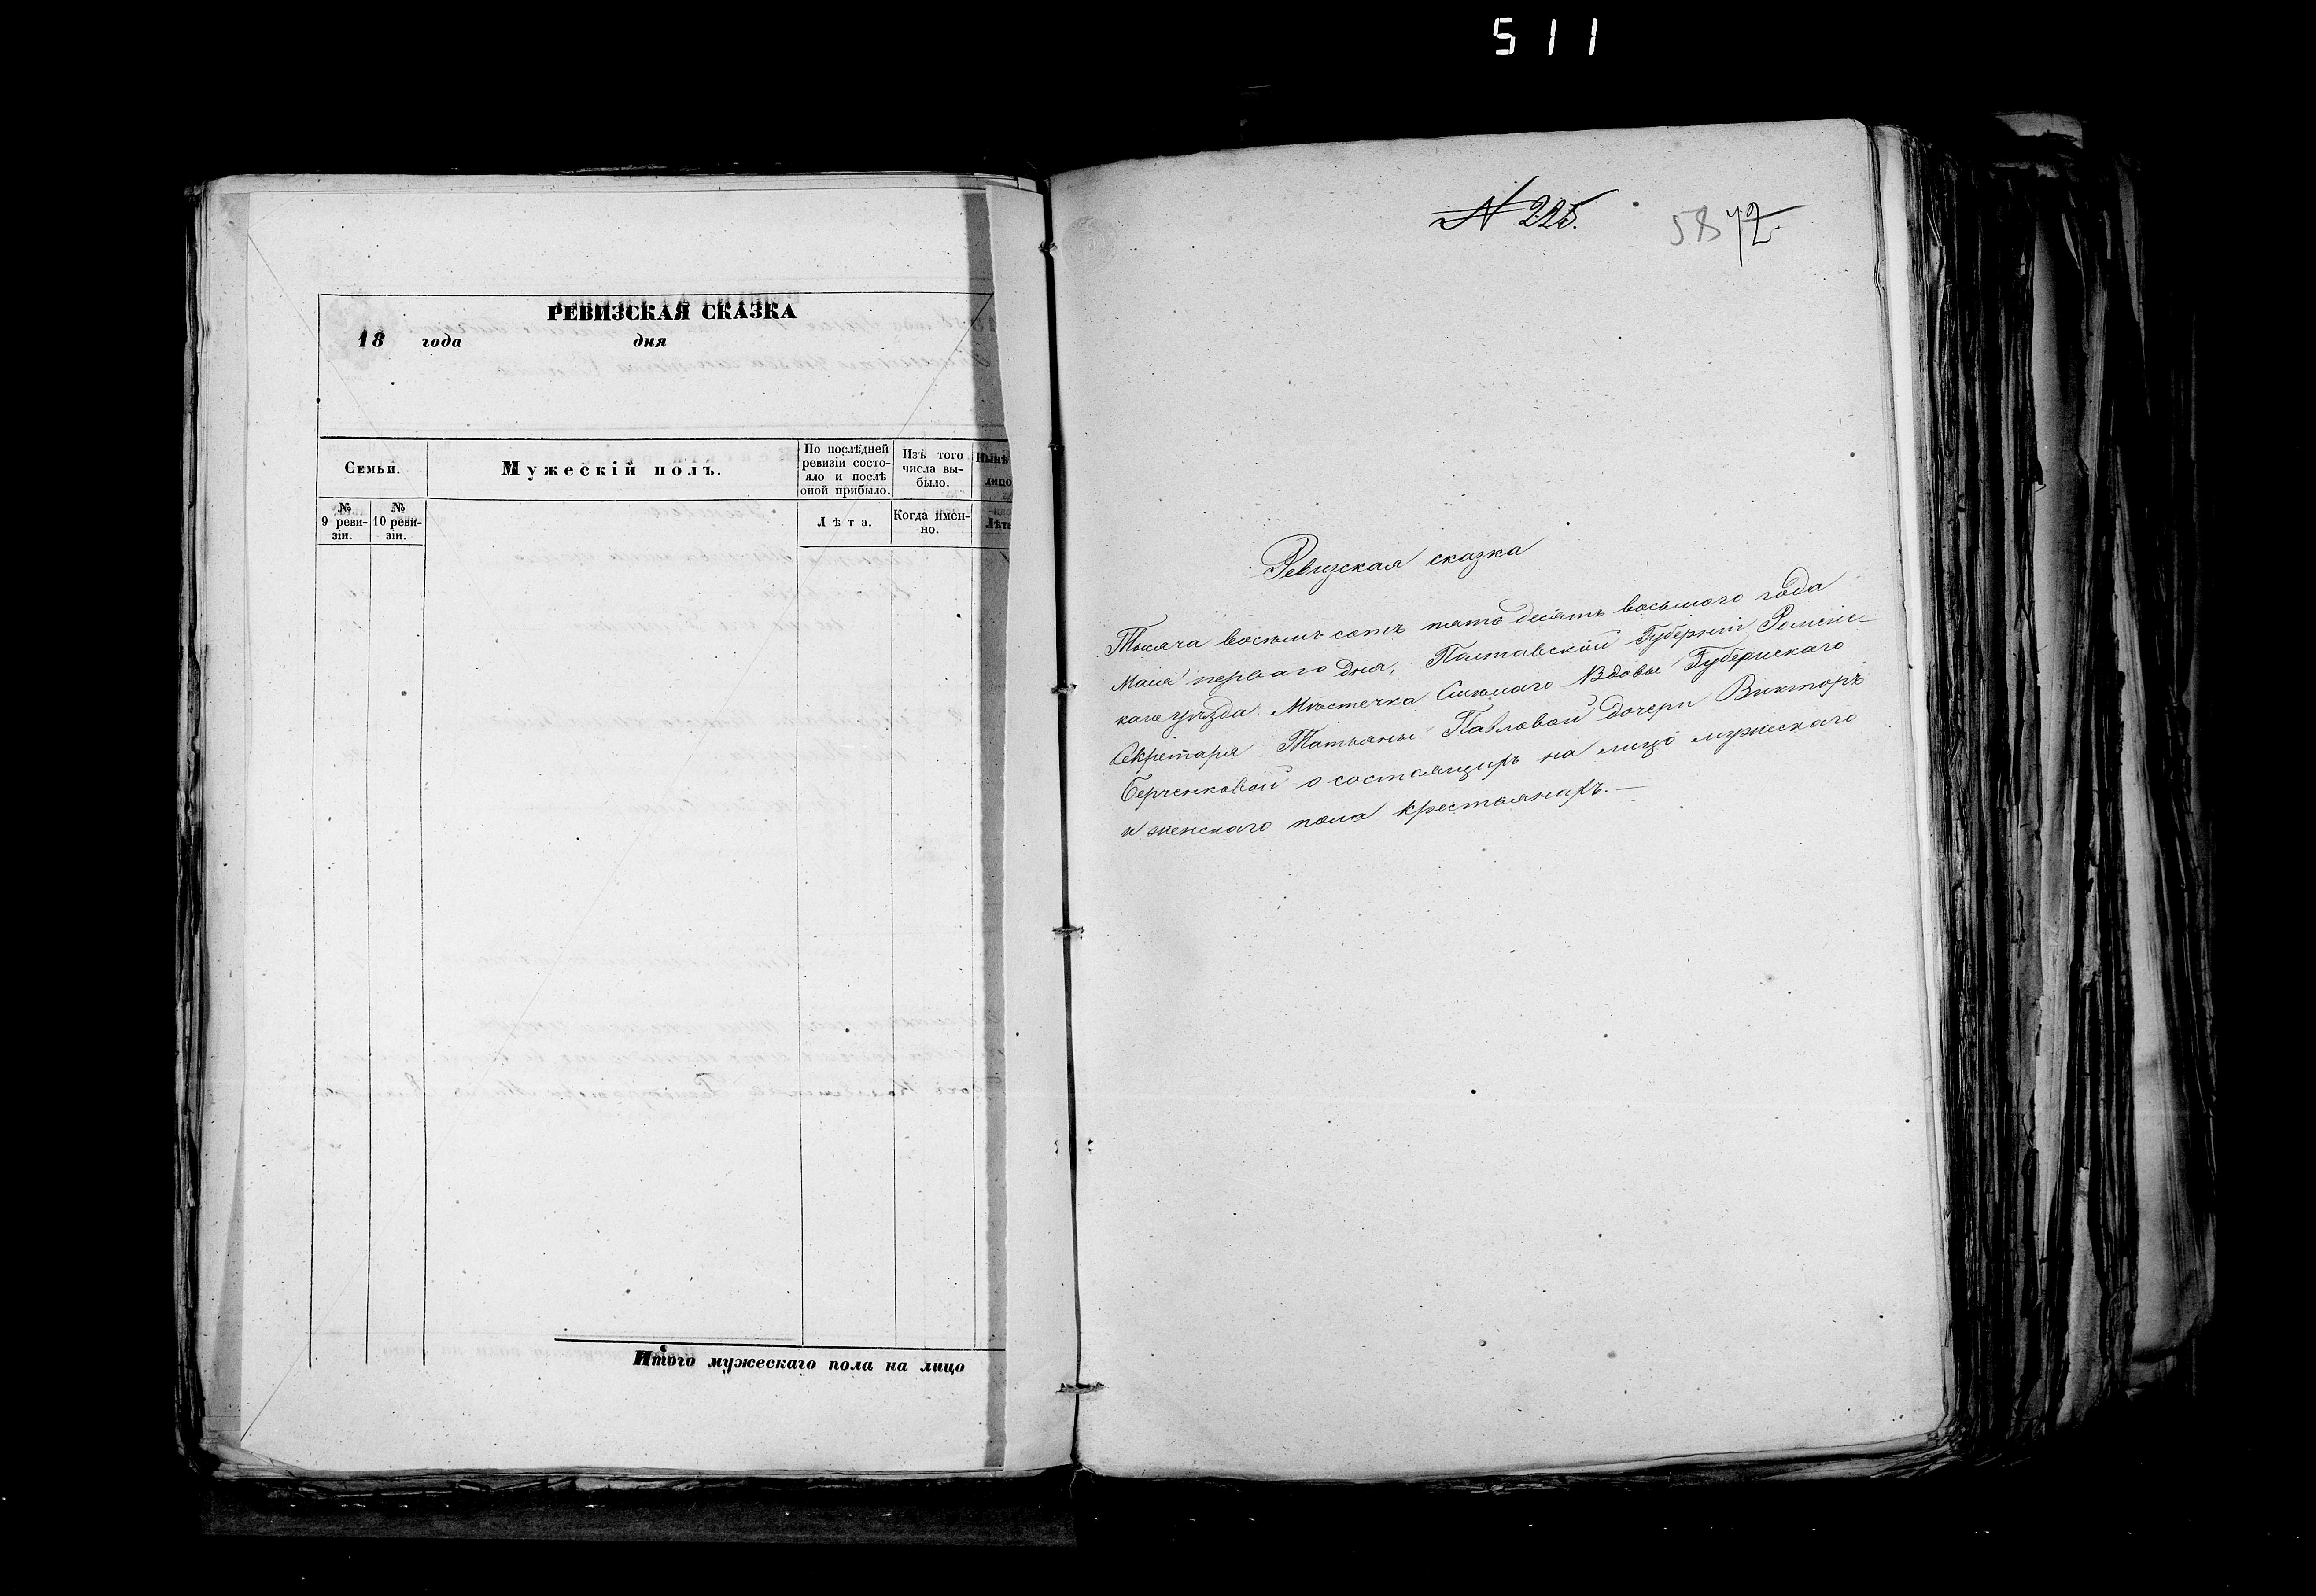 511
РЕВИЗСКАЯ СКАЗКА
18 года дня
Семьи.
Мужескій полъ.
По послѣдней ревизіи состо-
яло и послѣ
оной прибыло.
Изъ того
числа вы-
было.
Нынѣ
лицо
№
9 реви-
зіи.
№
10 реви-
зіи.
Лѣта.
Когда имен-
но.
Лѣта
Итого мужескаго пола на лицо
№ 225.
58 72.
Ревизская сказка
Тысяча восемь сотъ пятьдесятъ восьмого года
Мая перваго дня, Полтавской Губерніи Роменс-
каго уѣзда. Мѣстечка Смѣлаго Вдовы Губернскаго
Секретаря Татьяны Павловой дочери Викторъ
о состоящихъ на лицо мужескаго
и женскаго пола крестьянахъ.—